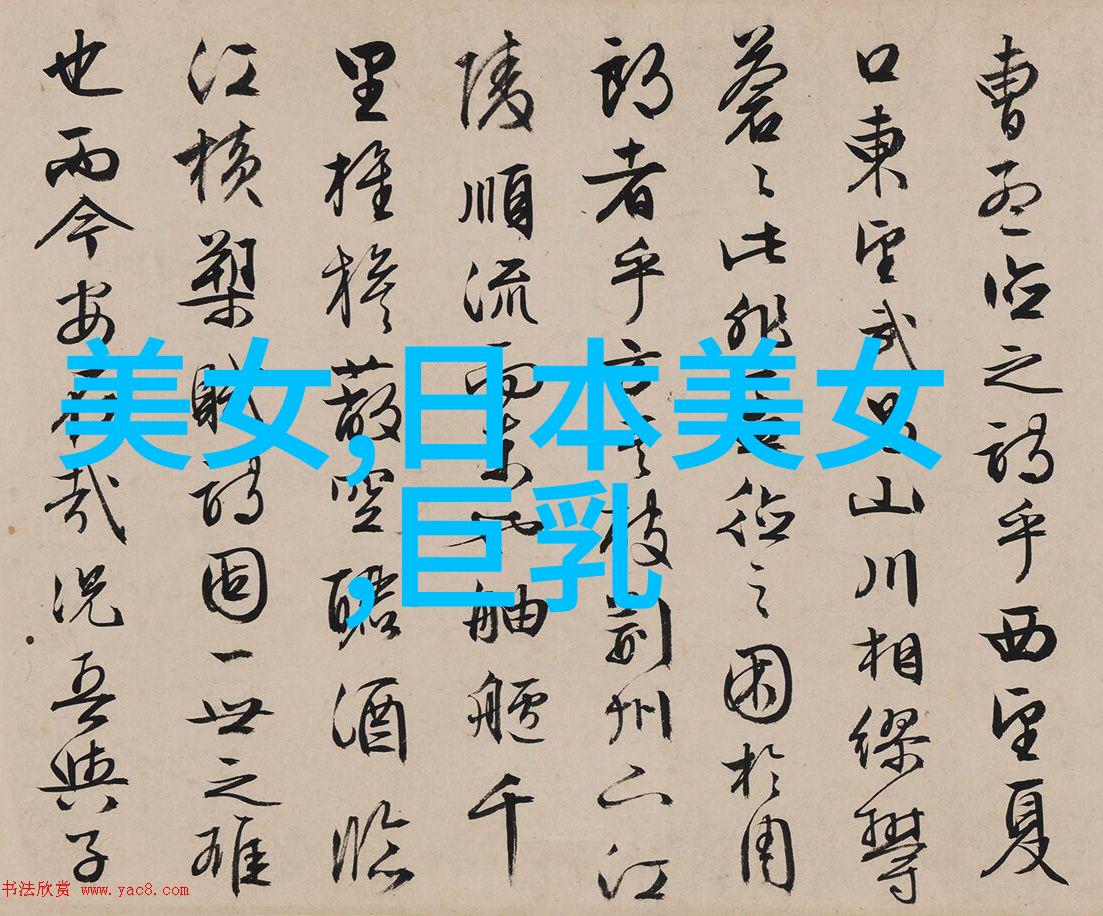 曹孟德之詩乎西望夏
口東望武昌山川相繆鬱
蒼〻此非孟德之困於周
郎者乎方其破荊州下江
陵順流而東也舳艫千
里旌旗蔽空釃酒臨
江橫槊賦詩固一世之雄
也而今安在哉況吾與子
美女,日本美女
,巨乳
书法欣赏 www.yac8.com